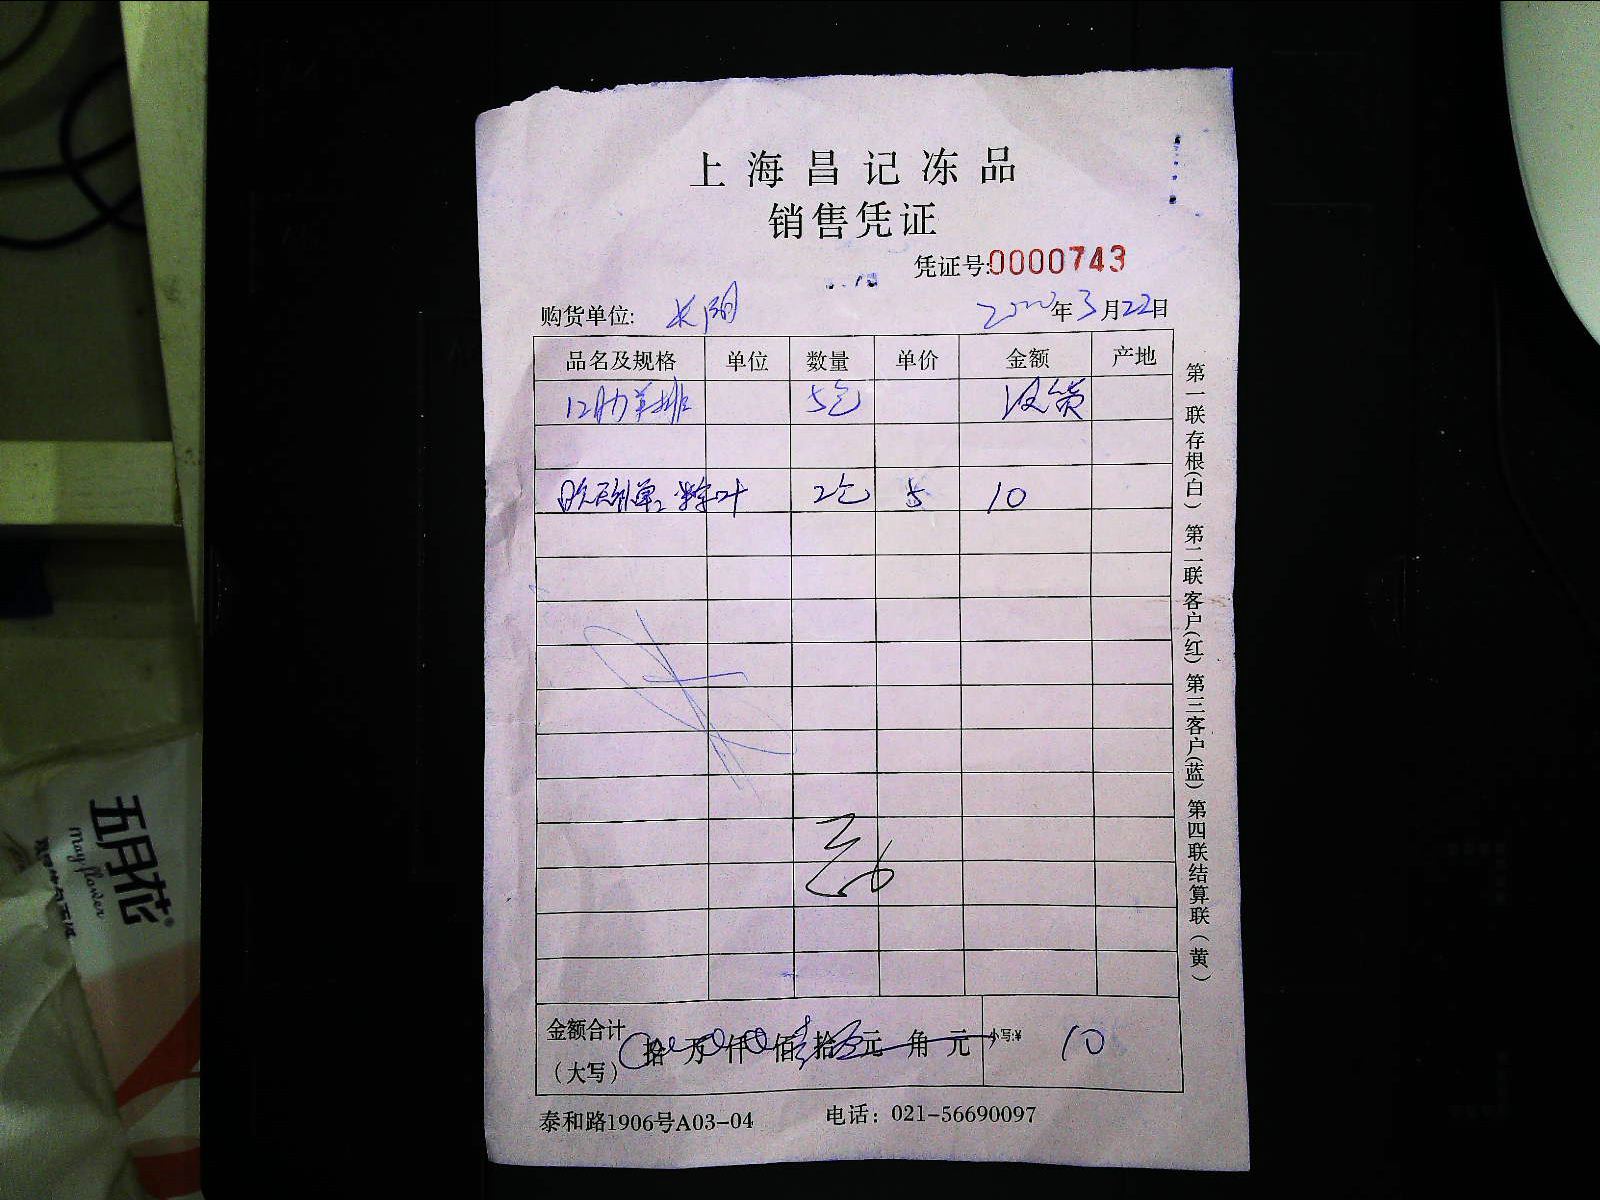 上海昌记冻品
销售凭证
凭证号:0000743
购货单位: 长阳 年3月22日
品名及规格 单位 数量 单价 金额 产地
12肋羊排 5包 没货
2包 5 10
金额合计
(大写) 拾 万 仟 佰壹拾 元 角 元 小写:¥ 10
泰和路1906号A03-04 电话: 021-56690097
第一联存根(白) 第二联客户(红) 第三客户(蓝) 第四联结算联(黄)
五月花
Mayflower